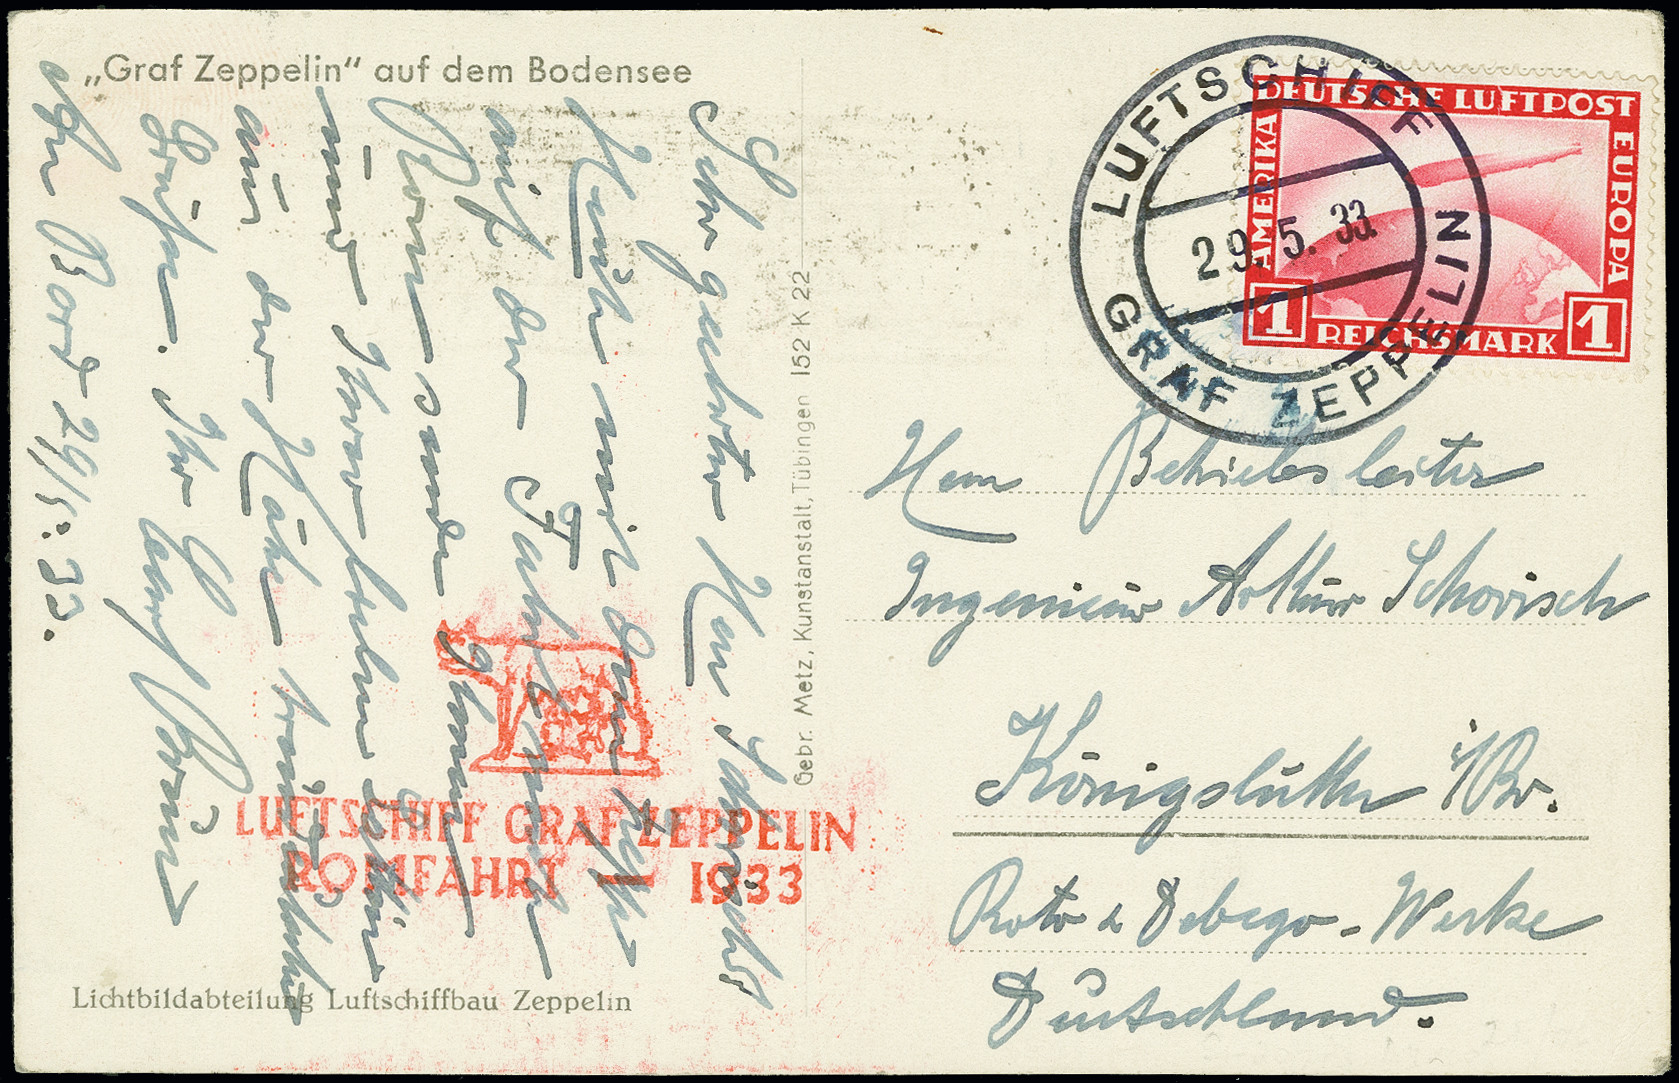 „Graf Zeppelin“ auf dem Bodensee
Sehr geehrter Herr
Heute mit dem
mit der Fahrt nach
Rom sende Ihnen
und Ihrer
aus der Höhe
Grüße. Ihr
An Bord 29/5. 33.
LUFTSCHIFF GRAF ZEPPELIN
ROMFAHRT — 1933
Lichtbildabteilung Luftschiffbau Zeppelin
Gebr. Metz, Kunstanstalt, Tübingen 152 K 22
LUFTSCHIFF
29. 5. 33.
GRAF ZEPPELIN
DEUTSCHE LUFTPOST
AMERIKA
EUROPA
1 REICHSMARK 1
Herrn Betriebsleiter
Ingenieur Arthur Schovisch
Königslutter i/Br.
Roto & Debego-Werke
Deutschland.